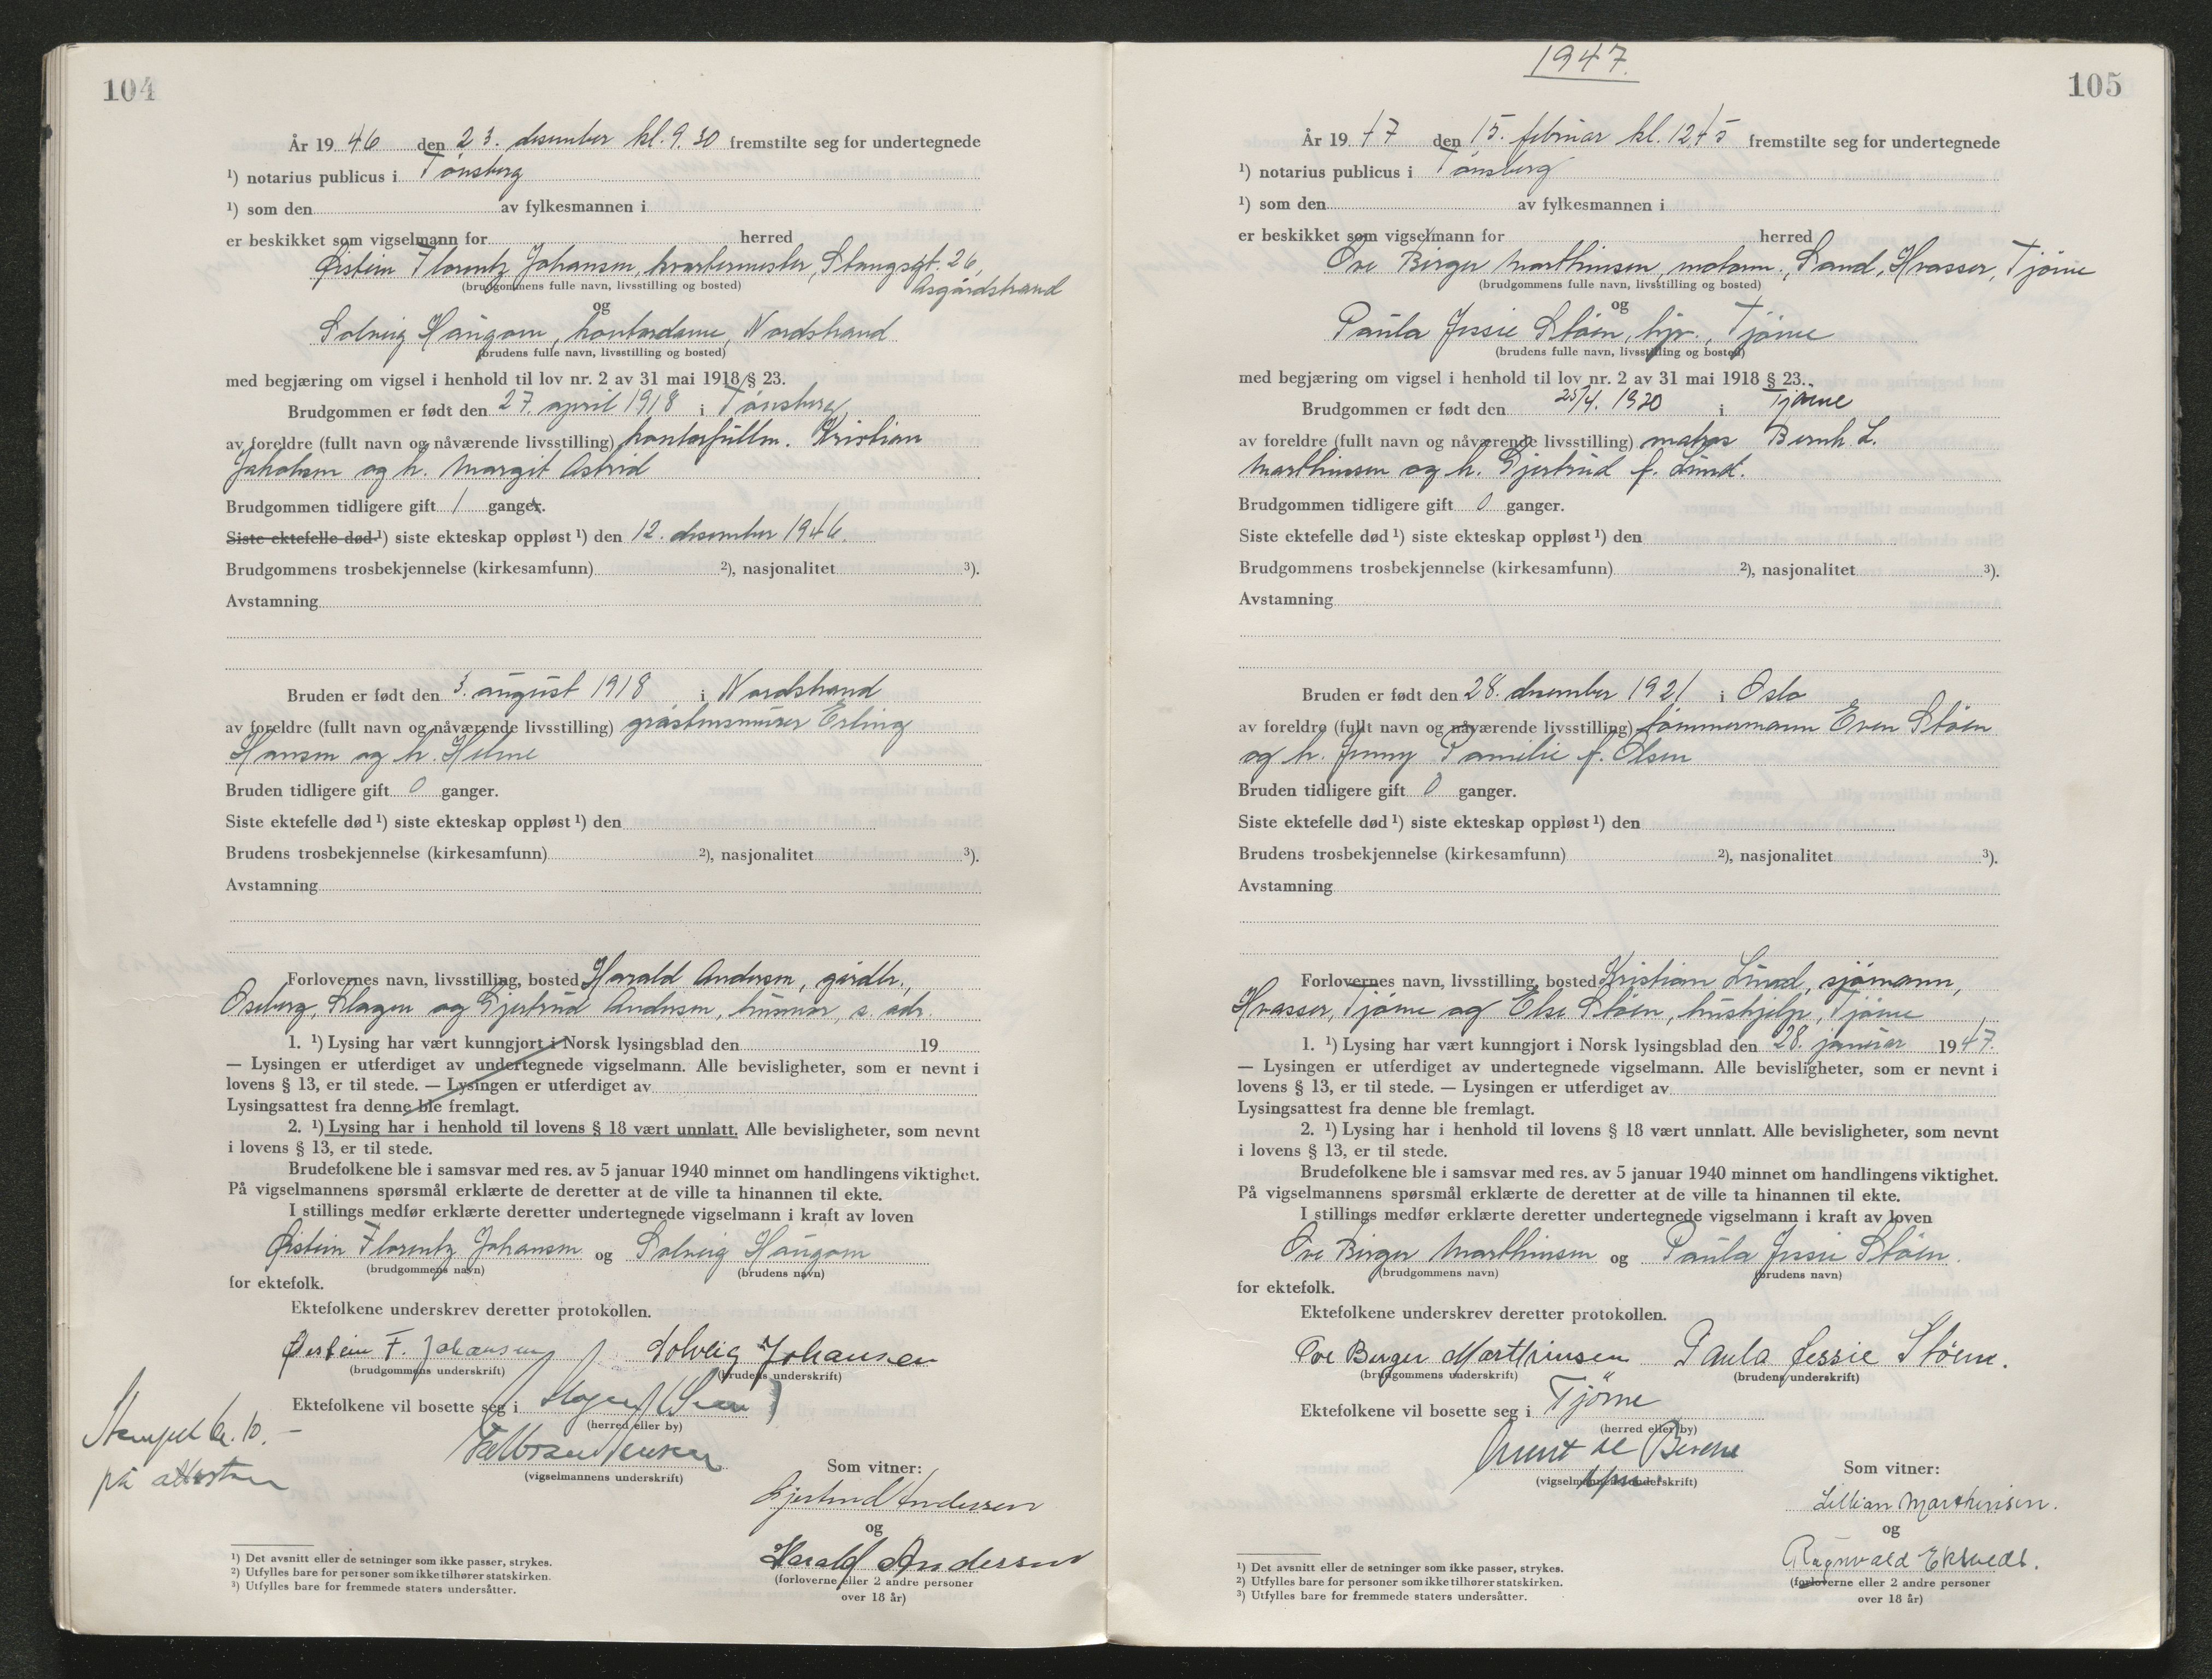 104
År 19 46 den 23. desember kl. 9.30 fremstilte seg for undertegnede
¹) notarius publicus i Tønsberg
¹) som den av fylkesmannen i
er beskikket som vigselmann for herred
Øistein Florentz Johansen, kvartermester, Stangsgt. 26,
(brudgommens fulle navn, livsstilling og bosted) Åsgårdstrand
og
Solveig Haugom, kontordame, Nordstrand
(brudens fulle navn, livsstilling og bosted)
med begjæring om vigsel i henhold til lov nr. 2 av 31 mai 1918 § 23.
Brudgommen er født den 27. april 1918 i Tønsberg
av foreldre (fullt navn og nåværende livsstilling) kontorfullm. Kristian
og h. Margit Astrid
Brudgommen tidligere gift 1 ganger.
Siste ektefelle død ¹) siste ekteskap oppløst ¹) den 12. desember 1946.
Brudgommens trosbekjennelse (kirkesamfunn) ²), nasjonalitet ³).
Avstamning
Bruden er født den 3. august 1918 i Nordstrand
av foreldre (fullt navn og nåværende livsstilling) gråstensmurer Erling
Hansen og h. Helene
Bruden tidligere gift 0 ganger.
Siste ektefelle død ¹) siste ekteskap oppløst ¹) den
Brudens trosbekjennelse (kirkesamfunn) ²), nasjonalitet ³).
Avstamning
Forlovernes navn, livsstilling, bosted Harald Andersen, gårdbr.,
Oseberg, Slagen og Gjertrud Andersen, husmor, s. adr.
1. ¹) Lysing har vært kunngjort i Norsk lysingsblad den 19
— Lysingen er utferdiget av undertegnede vigselmann. Alle bevisligheter, som er nevnt i
lovens § 13, er til stede. — Lysingen er utferdiget av
Lysingsattest fra denne ble fremlagt.
2. ¹) Lysing har i henhold til lovens § 18 vært unnlatt. Alle bevisligheter, som nevnt
i lovens § 13, er til stede.
Brudefolkene ble i samsvar med res. av 5 januar 1940 minnet om handlingens viktighet.
På vigselmannens spørsmål erklærte de deretter at de ville ta hinannen til ekte.
I stillings medfør erklærte deretter undertegnede vigselmann i kraft av loven
Øistein Florentz Johansen og Solveig Haugom
(brudgommens navn) (brudens navn)
for ektefolk.
Ektefolkene underskrev deretter protokollen.
Øistein F. Johansen Solveig Johansen
(brudgommens underskrift) (brudens underskrift)
Ektefolkene vil bosette seg i Slagen
(herred eller by)
Stempel kr. 10.–
på attesten
(vigselmannens underskrift)
Som vitner:
Gjertrud Andersen
og
Harald Andersen
(forloverne eller 2 andre personer
over 18 år)
¹) Det avsnitt eller de setninger som ikke passer, strykes.
²) Utfylles bare for personer som ikke tilhører statskirken.
³) Utfylles bare for fremmede staters undersåtter.
1947.
105
År 19 47 den 15. februar kl. 12,45 fremstilte seg for undertegnede
¹) notarius publicus i Tønsberg
¹) som den av fylkesmannen i
er beskikket som vigselmann for herred
Ove Birger Marthinsen, motorm., Sand, Hvasser, Tjøme
(brudgommens fulle navn, livsstilling og bosted)
og
Paula Jessie Støen, hjv., Tjøme
(brudens fulle navn, livsstilling og bosted)
med begjæring om vigsel i henhold til lov nr. 2 av 31 mai 1918 § 23.
Brudgommen er født den 25/4. 1920 i Tjøme
av foreldre (fullt navn og nåværende livsstilling) matros Bernh. L.
Marthinsen og h. Gjertrud f. Lund.
Brudgommen tidligere gift 0 ganger.
Siste ektefelle død ¹) siste ekteskap oppløst ¹) den
Brudgommens trosbekjennelse (kirkesamfunn) ²), nasjonalitet ³).
Avstamning
Bruden er født den 28. desember 1921 i Oslo
av foreldre (fullt navn og nåværende livsstilling) tømmermann Even Støen
og h. Jenny Pamelie f. Olsen
Bruden tidligere gift 0 ganger.
Siste ektefelle død ¹) siste ekteskap oppløst ¹) den
Brudens trosbekjennelse (kirkesamfunn) ²), nasjonalitet ³).
Avstamning
Forlovernes navn, livsstilling, bosted Kristian Lund, sjømann,
Hvasser, Tjøme og Else Støen, hushjelp, Tjøme
1. ¹) Lysing har vært kunngjort i Norsk lysingsblad den 28. januar 1947.
— Lysingen er utferdiget av undertegnede vigselmann. Alle bevisligheter, som er nevnt i
lovens § 13, er til stede. — Lysingen er utferdiget av
Lysingsattest fra denne ble fremlagt.
2. ¹) Lysing har i henhold til lovens § 18 vært unnlatt. Alle bevisligheter, som nevnt
i lovens § 13, er til stede.
Brudefolkene ble i samsvar med res. av 5 januar 1940 minnet om handlingens viktighet.
På vigselmannens spørsmål erklærte de deretter at de ville ta hinannen til ekte.
I stillings medfør erklærte deretter undertegnede vigselmann i kraft av loven
Ove Birger Marthinsen og Paula Jessie Støen.
(brudgommens navn) (brudens navn)
for ektefolk.
Ektefolkene underskrev deretter protokollen.
Ove Birger Marthinsen Paula Jessie Støen.
(brudgommens underskrift) (brudens underskrift)
Ektefolkene vil bosette seg i Tjöme
(herred eller by)
(vigselmannens underskrift)
Som vitner:
Lillian Marthinsen.
og
Ragnvald Ekstvedt.
(forloverne eller 2 andre personer
over 18 år)
¹) Det avsnitt eller de setninger som ikke passer, strykes.
²) Utfylles bare for personer som ikke tilhører statskirken.
³) Utfylles bare for fremmede staters undersåtter.